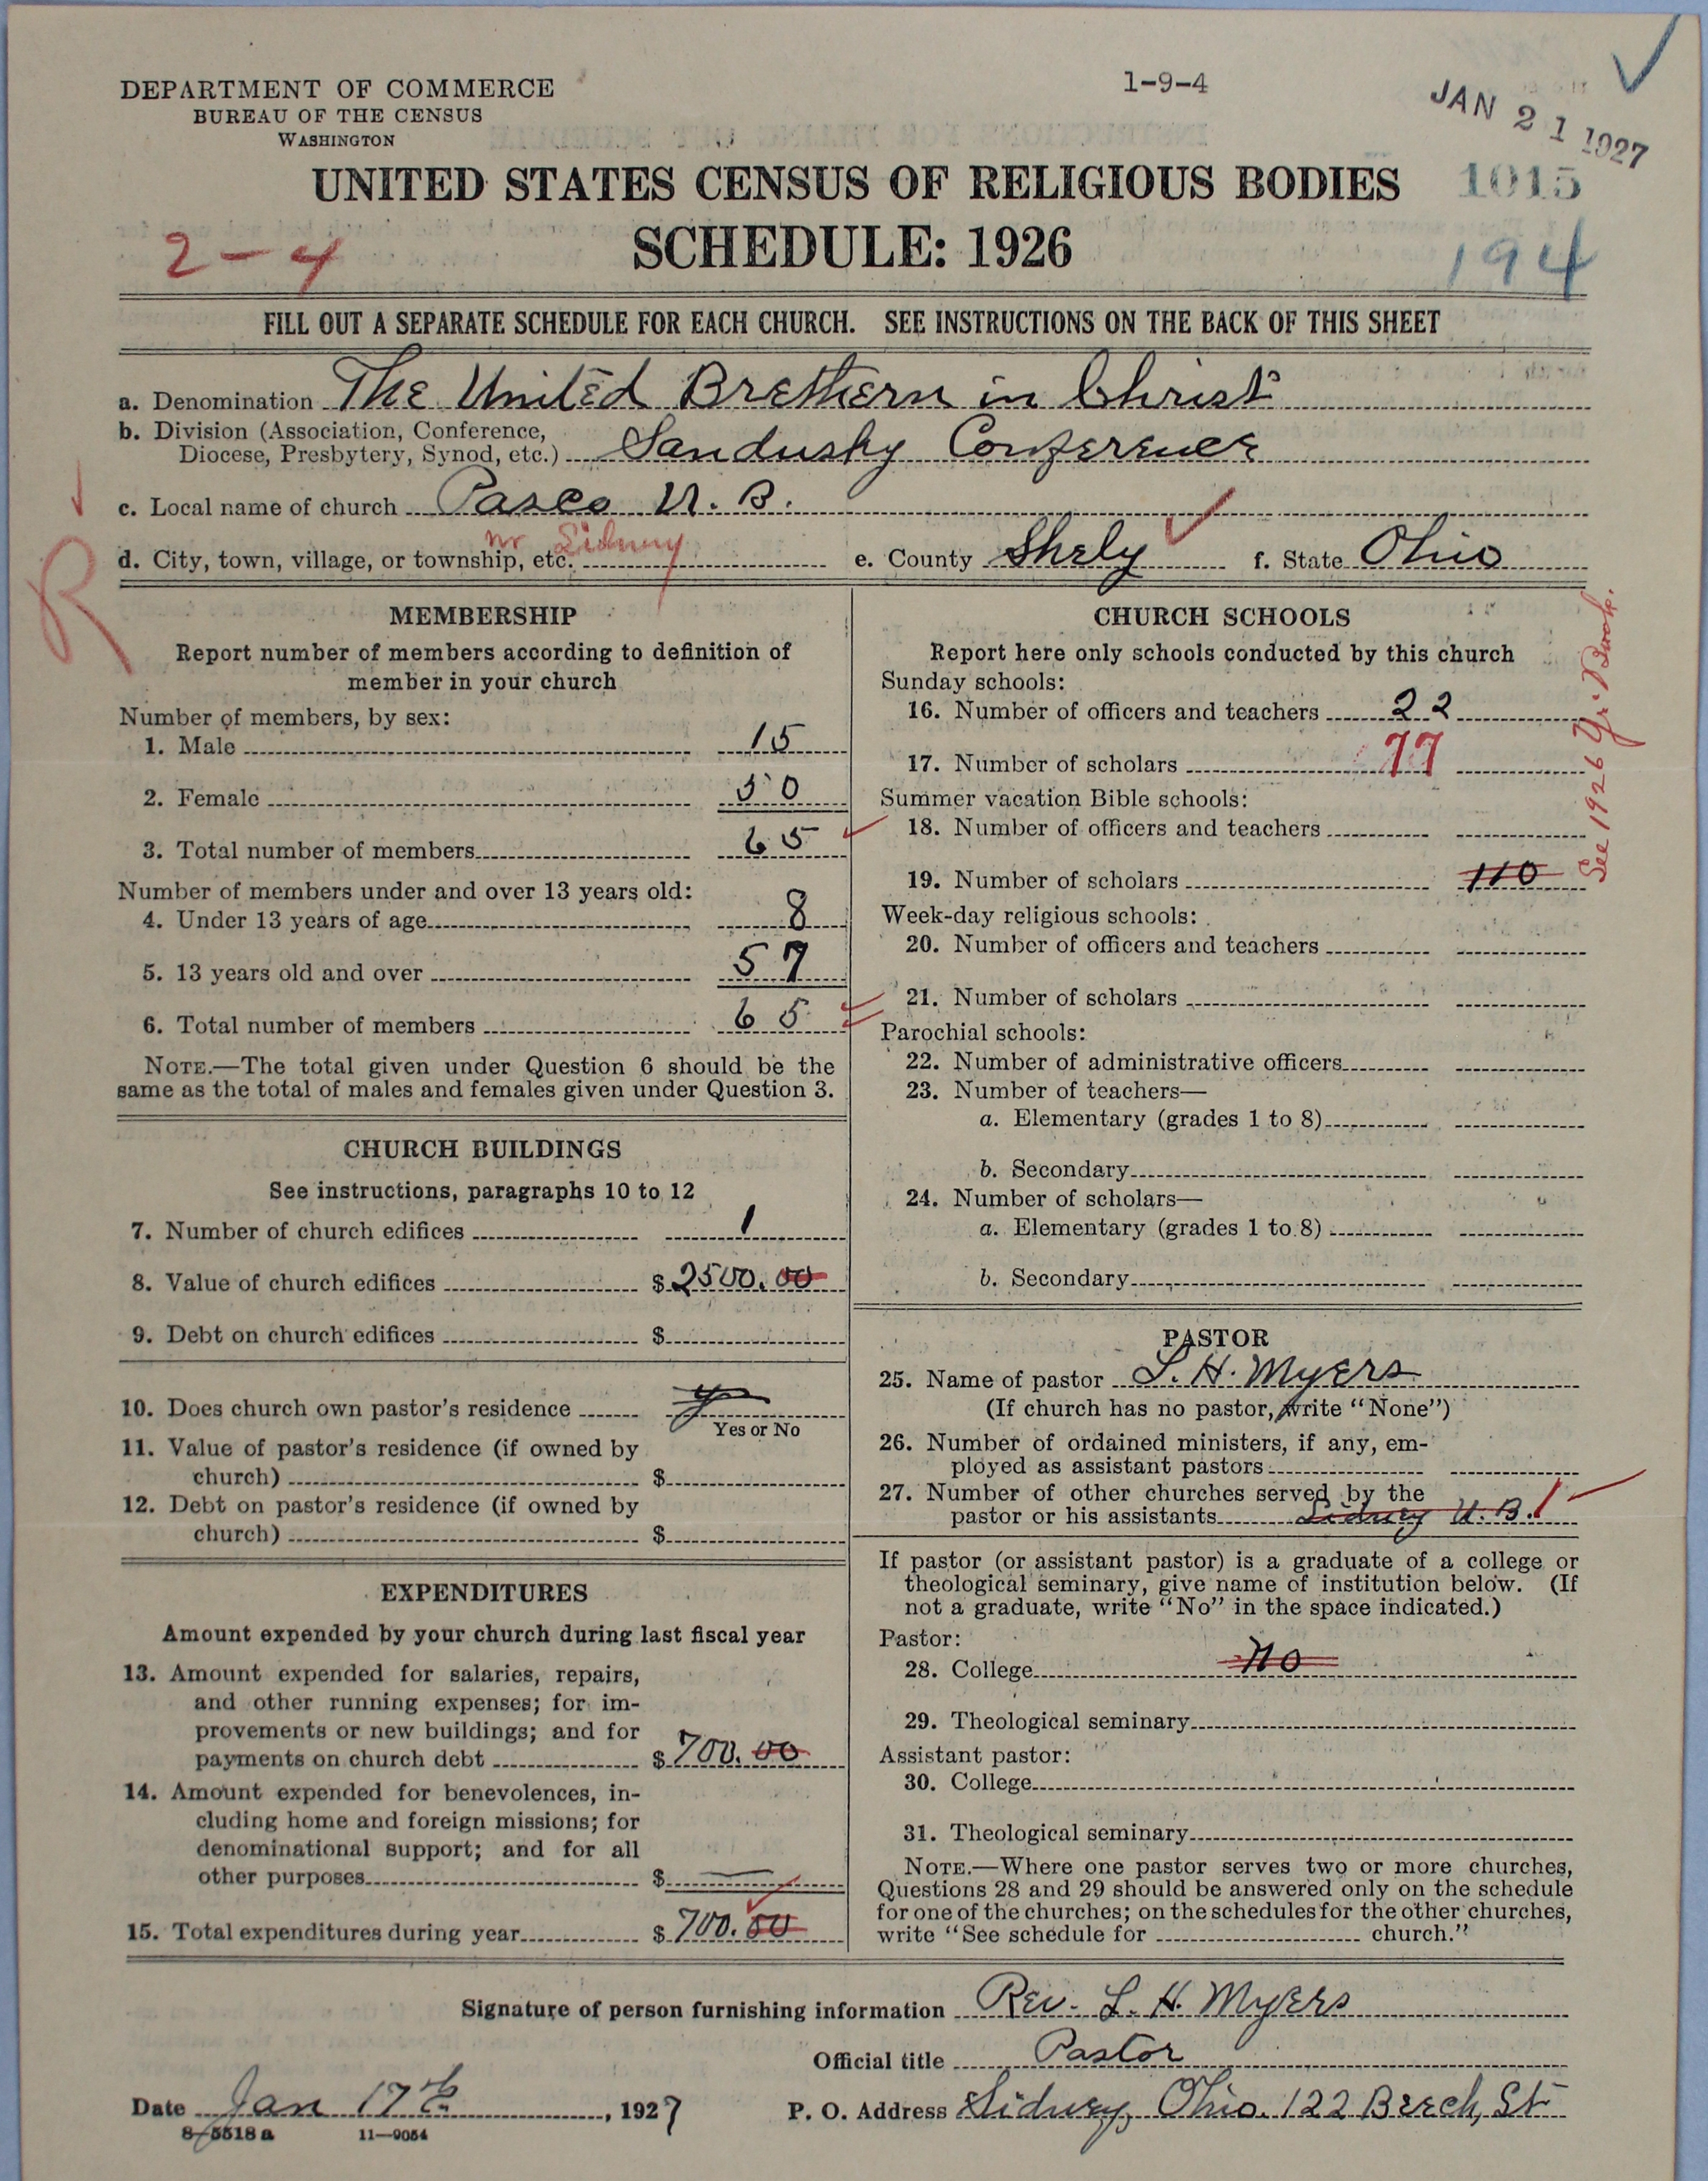 DEPARTMENT OF COMMERCE
BUREAU OF THE CENSUS
WASHINGTON
1-9-4
JAN 21 1927
UNITED STATES CENSUS OF RELIGIOUS BODIES
1015
2-4
SCHEDULE: 1926
194
FILL OUT A SEPARATE SCHEDULE FOR EACH CHURCH. SEE INSTRUCTIONS ON THE BACK OF THIS SHEET
a. Denomination The United Brethern in Christ
b. Division (Association, Conference,
Diocese, Presbytery, Synod, etc.) Sandusky Conference
c. Local name of church Pasco U. B.
d. City, town, village, or township, etc. nr Sidney e. County Shely f. State Ohio
R
MEMBERSHIP
Report number of members according to definition of
member in your church
Number of members, by sex:
1. Male 15
2. Female 50
3. Total number of members 65
Number of members under and over 13 years old:
4. Under 13 years of age 8
5. 13 years old and over 57
6. Total number of members 65
NOTE.—The total given under Question 6 should be the
same as the total of males and females given under Question 3.
CHURCH BUILDINGS
See instructions, paragraphs 10 to 12
7. Number of church edifices 1
8. Value of church edifices $2500.00
9. Debt on church edifices $
10. Does church own pastor's residence yes
Yes or No
11. Value of pastor's residence (if owned by
church) $
12. Debt on pastor's residence (if owned by
church) $
EXPENDITURES
Amount expended by your church during last fiscal year
13. Amount expended for salaries, repairs,
and other running expenses; for im-
provements or new buildings; and for
payments on church debt $700.00
14. Amount expended for benevolences, in-
cluding home and foreign missions; for
denominational support; and for all
other purposes $ —
15. Total expenditures during year $700.00
CHURCH SCHOOLS
Report here only schools conducted by this church
Sunday schools:
16. Number of officers and teachers 22
17. Number of scholars 77
Summer vacation Bible schools:
18. Number of officers and teachers
19. Number of scholars 110
See 1926 Yr. Book.
Week-day religious schools:
20. Number of officers and teachers
21. Number of scholars
Parochial schools:
22. Number of administrative officers
23. Number of teachers—
a. Elementary (grades 1 to 8)
b. Secondary
24. Number of scholars—
a. Elementary (grades 1 to 8)
b. Secondary
PASTOR
25. Name of pastor L. H. Myers
(If church has no pastor, write "None")
26. Number of ordained ministers, if any, em-
ployed as assistant pastors
27. Number of other churches served by the
pastor or his assistants Sidney U. B. 1
If pastor (or assistant pastor) is a graduate of a college or
theological seminary, give name of institution below. (If
not a graduate, write "No" in the space indicated.)
Pastor:
28. College no
29. Theological seminary
Assistant pastor:
30. College
31. Theological seminary
NOTE.—Where one pastor serves two or more churches,
Questions 28 and 29 should be answered only on the schedule
for one of the churches; on the schedules for the other churches,
write "See schedule for church."
Signature of person furnishing information Rev. L. H. Myers
Official title Pastor
Date Jan 17th, 1927 P. O. Address Sidney, Ohio. 122 Beech, St
8-5518a 11-9054